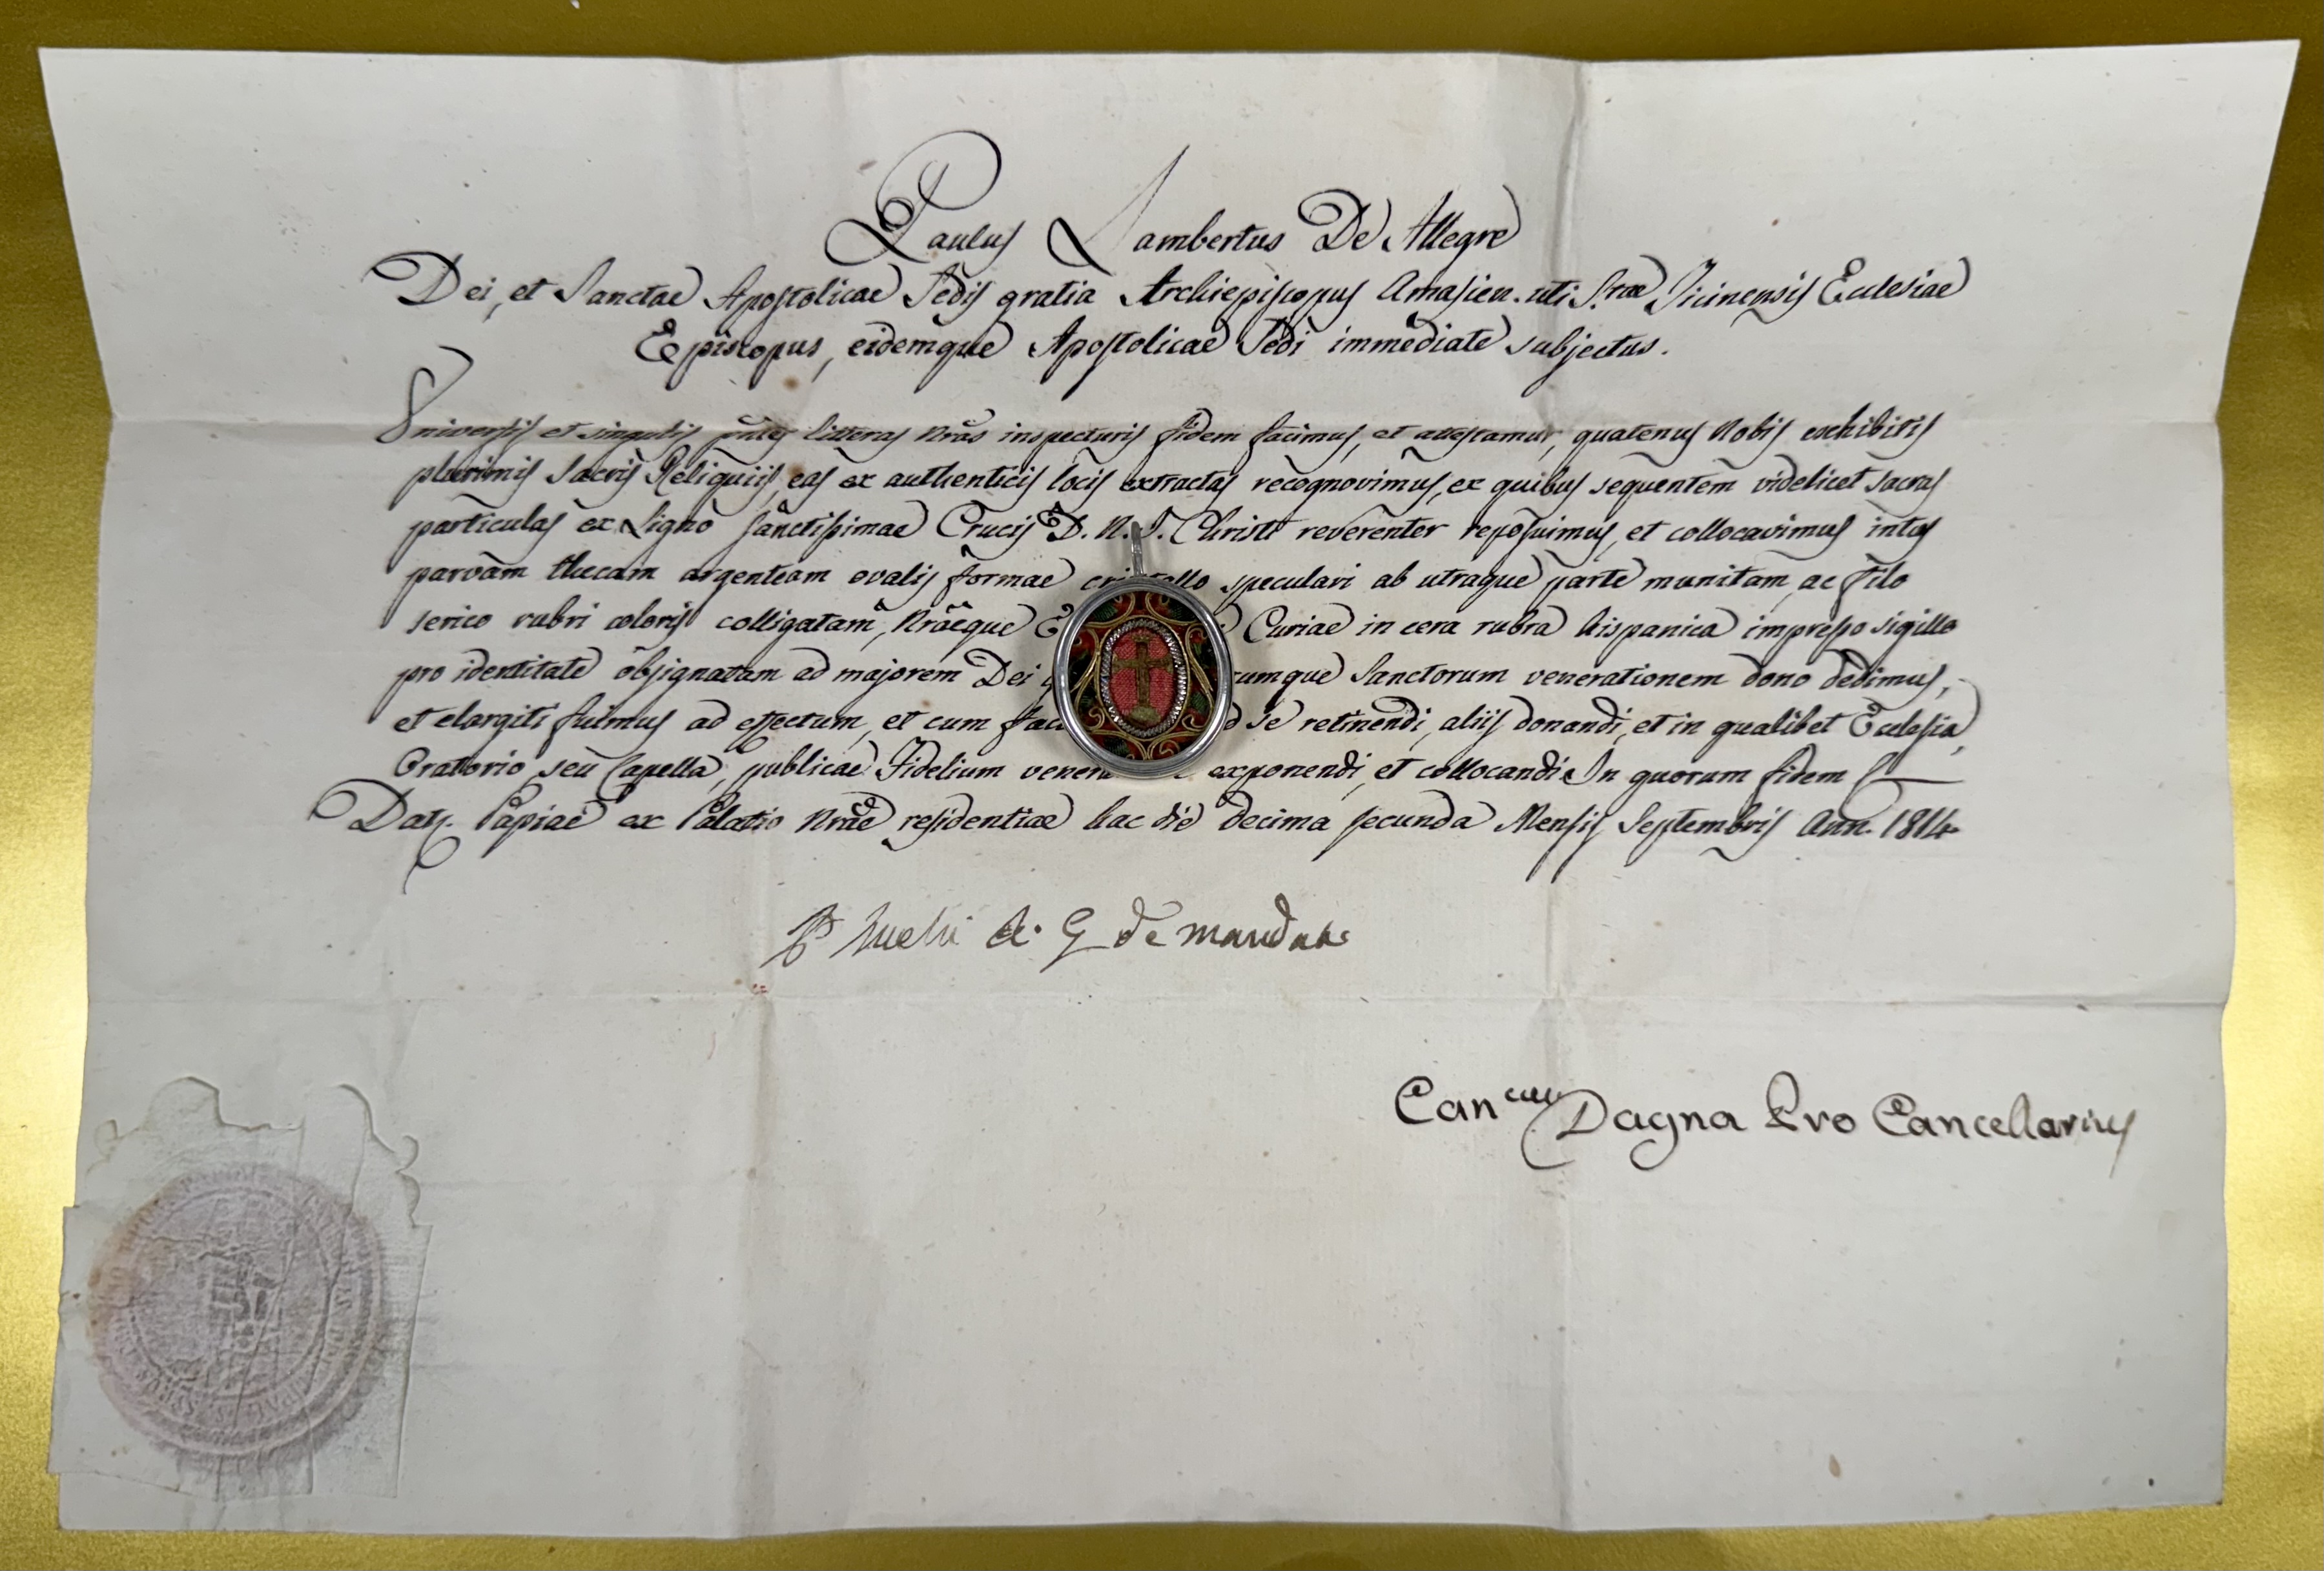 Paulus Lambertus De Allegre
Dei, et Sanctae Apostolicae Sedis gratia Archiepiscopus Amasien. uti S.rae Ticinensis Ecclesiae
Episcopus, eidemque Apostolicae Sedi immediate subjectus.
Universis et singulis pntes litteras nras inspecturis fidem facimus, et attestamur, quatenus Nobis exhibitis
plurimis Sacris Reliquiis, eas ex authenticis locis extractas recognovimus, ex quibus sequentem videlicet sacras
particulas ex Ligno Sanctissimae Crucis D. N. J. Christi reverenter reposuimus, et collocavimus intus
parvam thecam argenteam ovalis formae speculari ab utraque parte munitam, ac filo
serico rubri coloris colligatam, Nraeque Curiae in cera rubra hispanica impresso sigillo
pro identitate obsignatam ad majorem Dei Sanctorum venerationem dono dedimus,
et elargiti fuimus ad effectum, et cum se retinendi, aliis donandi, et in qualibet Ecclesia,
Oratorio, seu Capella, publicae Fidelium exponendi, et collocandi. In quorum fidem
Dat. Papiae ex Palatio Nrae residentiae hac die decima secunda Mensis Septembris Ann. 1814
de mandato
Can.cus Dagna Pro Cancellarius